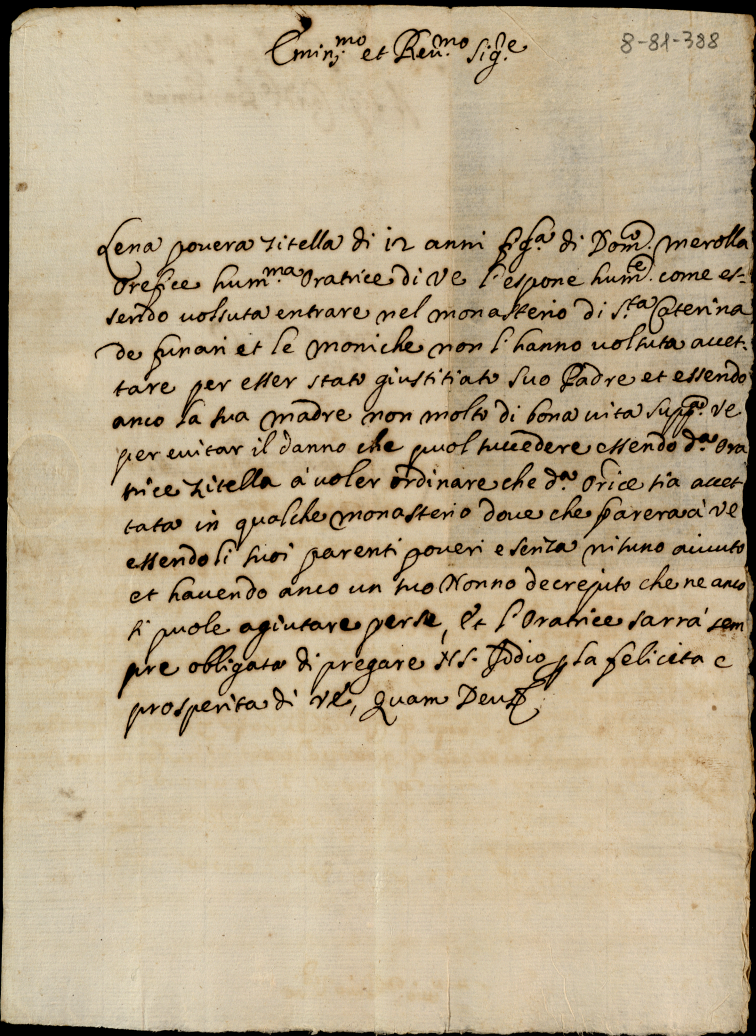 8-81-388
Emin.mo et Reu.mo Sig.re
Lena pouera zitella di 12 anni fig.a di Dom.co merolla
Orefice hum.ma Oratrice di VE l'espone hum.te come es=
sendo uolsuta entrare nel monasterio di S.ta Caterina
de funari et le moniche non l'hanno uolsuta accet=
tare per esser stato giustitiato suo Padre et essendo
anco la sua madre non molto di bona uita supp.ca VE
per euitar il danno che puol succedere essendo d.a Ora
trice zitella à uoler ordinare che d.a Or.ice sia accet
tata in qualche monasterio doue che parera à VE
essendoli suoi parenti poueri e senza nisuno aiuuto
et hauendo anco un suo Nonno decrepito che ne anco
si puole agiutare per se, Et l'Oratrice sarrà sem
pre obligata di pregare N.S. Iddio p la felicita e
prosperita di VE, Quam Deus